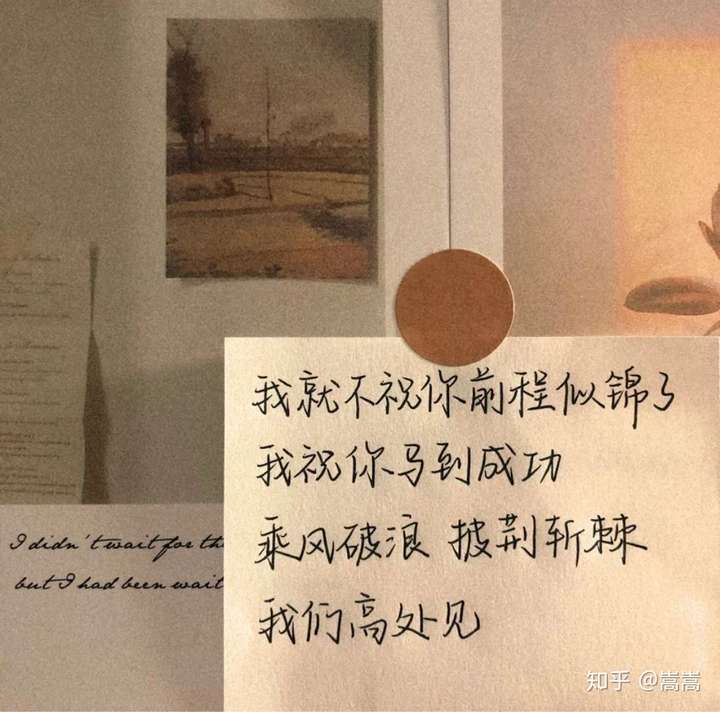 我就不祝你前程似锦了
我祝你马到成功
乘风破浪 披荆斩棘
我们高处见
I didn't wait for th
but I had been wait
知乎 @嵩嵩